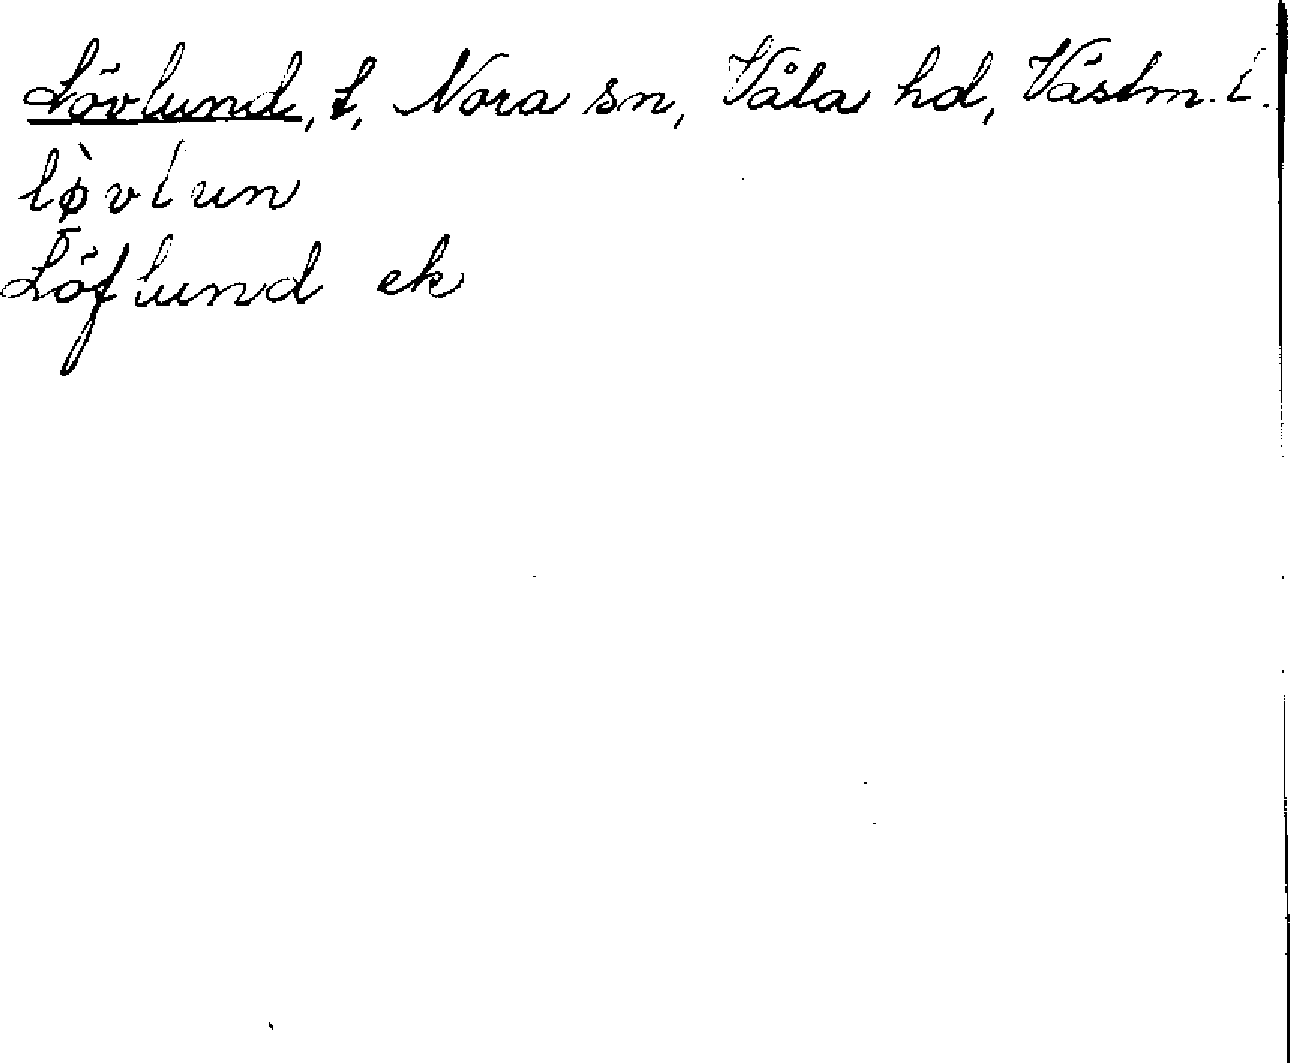 Lövlund, t, Nora sn, Våla hd, Västm. l.
lø̀vlun
Löflund ek